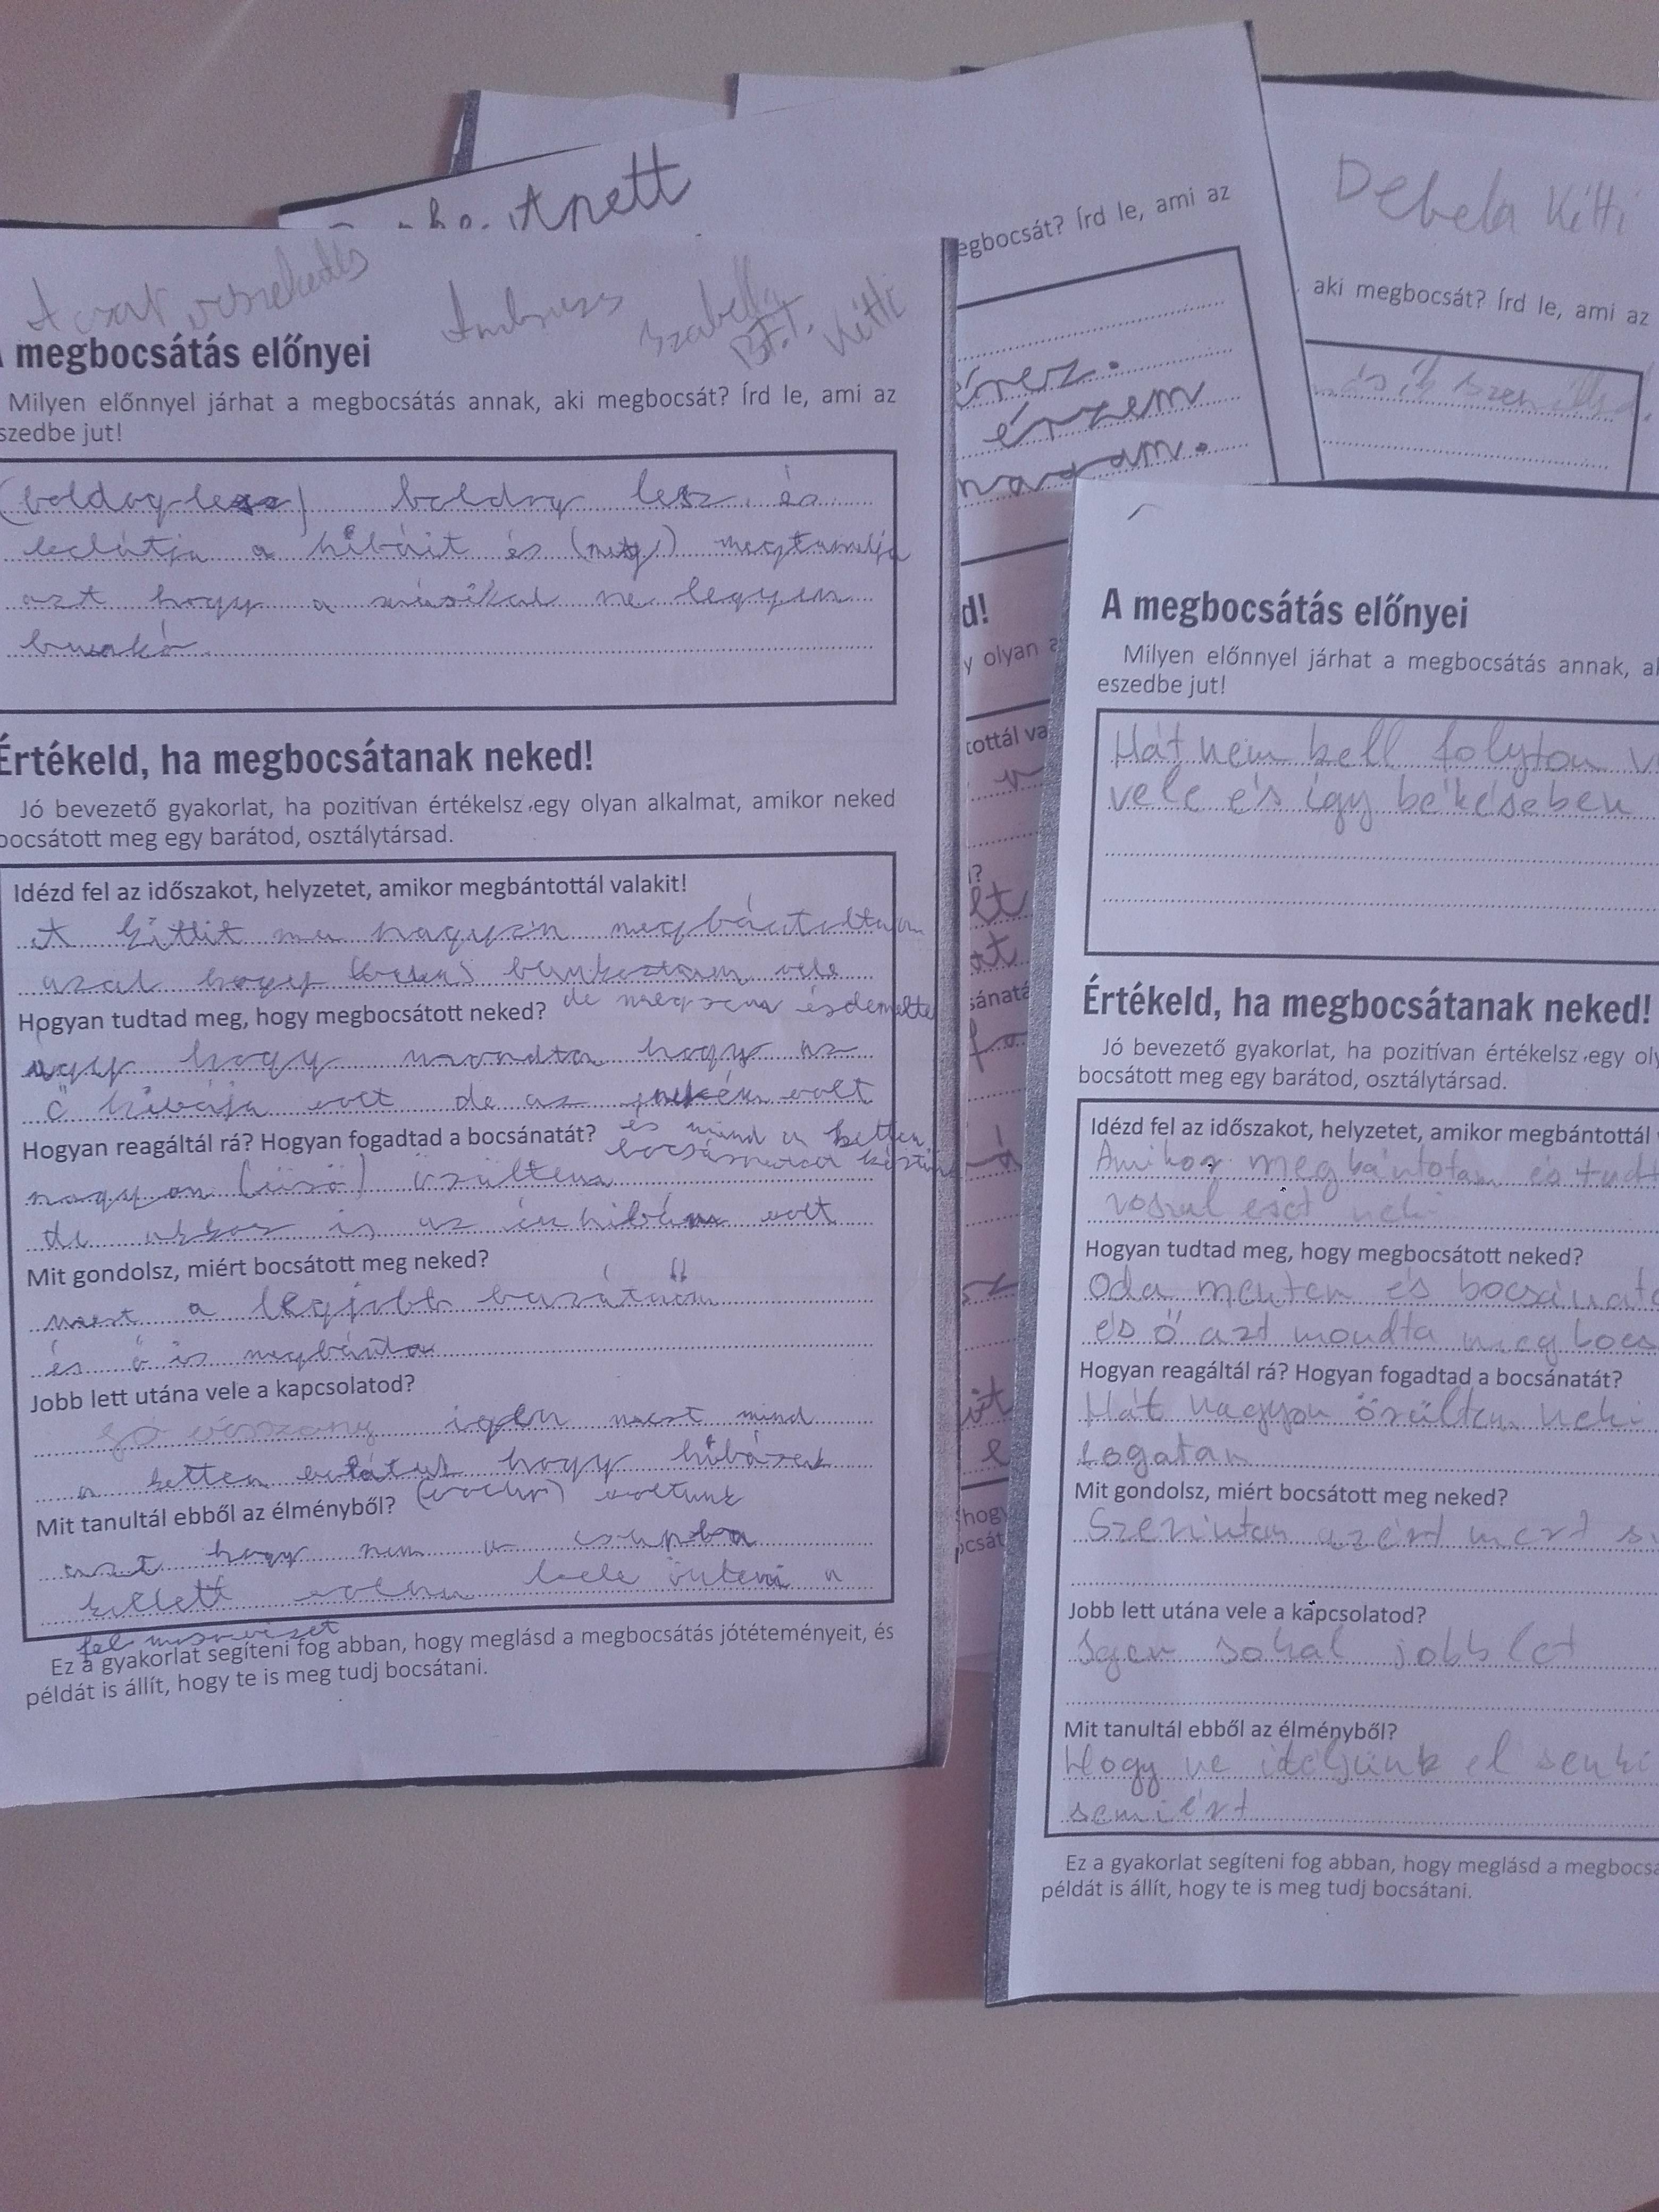 Anett
Debela Kitti
egbocsát? Írd le, ami az
érez.
érzem
magam.
aki megbocsát? Írd le, ami az
A csat veszekedés
Ambrus Izabella
B.T. Kitti
A megbocsátás előnyei
Milyen előnnyel járhat a megbocsátás annak, aki megbocsát? Írd le, ami az
szedbe jut!
(boldog lesz) boldog lesz és
belátja a hibáit és (meg) megtanulja
azt hogy a másikal ne legyen
bunkó.
Értékeld, ha megbocsátanak neked!
Jó bevezető gyakorlat, ha pozitívan értékelsz egy olyan alkalmat, amikor neked
bocsátott meg egy barátod, osztálytársad.
Idézd fel az időszakot, helyzetet, amikor megbántottál valakit!
A Kittit mer nagyon megbántottam
azal hogy bunkoztam vele
Hogyan tudtad meg, hogy megbocsátott neked? de meg sem érdemelte
ugy hogy mondta hogy az
ő hibája volt de az enyém volt
Hogyan reagáltál rá? Hogyan fogadtad a bocsánatát? és mind a ketten
bocsánatot kértünk
nagyon örültem
de akkor is az én hibám volt
Mit gondolsz, miért bocsátott meg neked?
mert a legjobb barátnőm
és ő is megbánta
Jobb lett utána vele a kapcsolatod?
igen mert mind
a ketten beláttuk hogy hibásak
Mit tanultál ebből az élményből? voltunk
azt hogy nem a csapba
kellett volna bele önteni a
fel mosóvizet
Ez a gyakorlat segíteni fog abban, hogy meglásd a megbocsátás jótéteményeit, és
példát is állít, hogy te is meg tudj bocsátani.
d!
y olyan a
tottál va
sánatá
hogy
ocsát
A megbocsátás előnyei
Milyen előnnyel járhat a megbocsátás annak, a
eszedbe jut!
Hát nem kell folyton v
vele és így békéseben
Értékeld, ha megbocsátanak neked!
Jó bevezető gyakorlat, ha pozitívan értékelsz egy oly
bocsátott meg egy barátod, osztálytársad.
Idézd fel az időszakot, helyzetet, amikor megbántottál
Amikor megbántotam és tudt
roszul eset neki
Hogyan tudtad meg, hogy megbocsátott neked?
Oda mentem és bocsánato
és ő azt mondta megbocs
Hogyan reagáltál rá? Hogyan fogadtad a bocsánatát?
Hát nagyon örültem neki
fogatam
Mit gondolsz, miért bocsátott meg neked?
Szerintem azért mert s
Jobb lett utána vele a kapcsolatod?
Igen sokal jobb let
Mit tanultál ebből az élményből?
Hogy ne itéljünk el senki
semiért
Ez a gyakorlat segíteni fog abban, hogy meglásd a megbocsá
példát is állít, hogy te is meg tudj bocsátani.